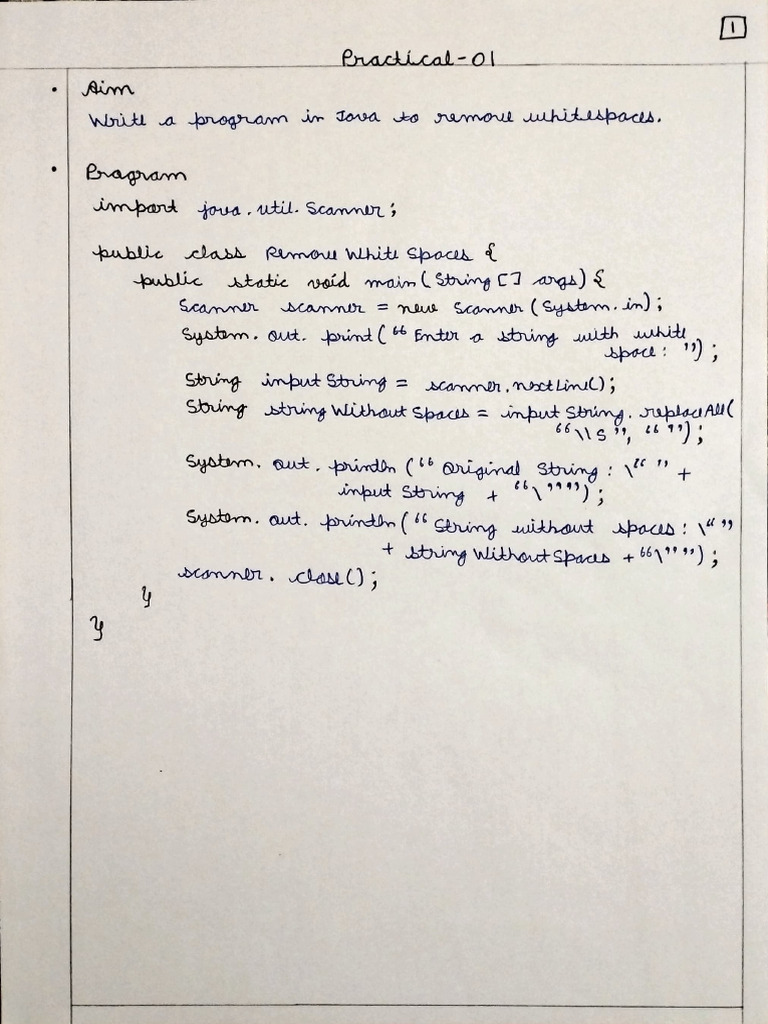 1
Practical-01
• Aim
Write a program in Java to remove whitespaces.
• Program
import java.util.Scanner;
public class Remove White Spaces {
public static void main(String [] args) {
Scanner scanner = new Scanner (System.in);
System.out.print(“Enter a string with white
space: ”);
String inputString = scanner.nextLine();
String stringWithoutSpaces = inputString.replaceAll(
“\\s”, “”);
System.out.println (“Original String: \“ ” +
inputString + “\””);
System.out.println(“String without spaces: \“”
+ stringWithoutSpaces + “\””);
scanner.close();
}
}